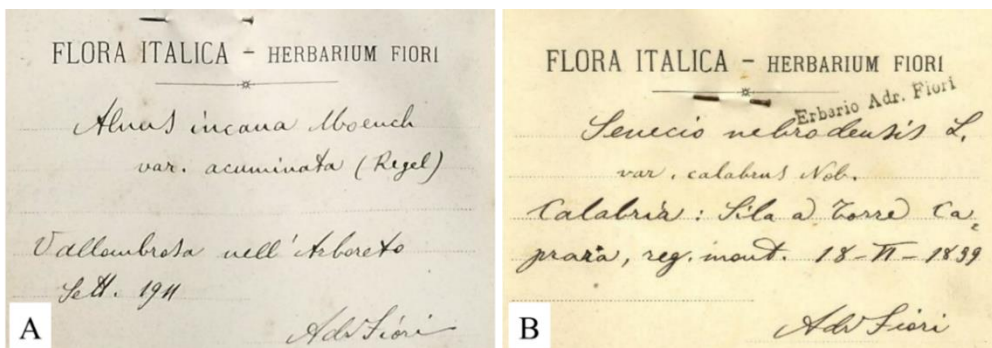 FLORA ITALICA - HERBARIUM FIORI
Alnus incana Moench
var. acuminata (Regel)
Vallombrosa nell'Arboreto
Sett. 1911
Adr Fiori
A
FLORA ITALICA - HERBARIUM FIORI
Erbario Adr. Fiori
Senecio nebrodensis L.
var. calabrus Nob.
Calabria: Sila a Torre Ca
prara, reg. mont. 18-VI-1899
Adr Fiori
B